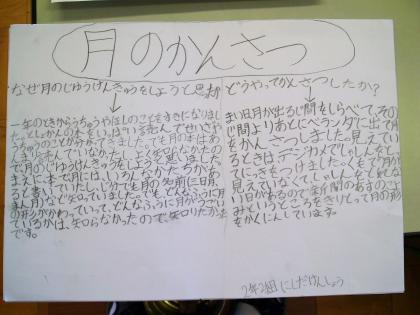 月のかんさつ
なぜ月のじゆうけんきゅうをしようと思
↓
一年のときからうちゅうやほしのことをすきになりまし
た。としょかんの本をいっぱい読んでせいざや
うちゅうのことが分かってきました。でも月の本はあ
んまり読んでいなかったし、よく知らなかったの
で月のじゆうけんきゅうをしようと思いました。
まえに本で月には、いろんなかたちがあ
ると書いていたし、じ分でも月の名前(三日月、
まん月)などを知っていました。でもどんなふうに月
の形がかわっていって、どんなふうに月がうごいて
いるかは、知らなかったので知りたかった
です。
どうやってかんさつしたか?
↓
まい日月が出るじ間をしらべて、その
じ間よりあとにベランダに出て月
をかんさつしました。見えてい
るときはデジカメでしゃしんをとっ
てにっきをつけました。くもで月が
見えていなくてしゃしんをとれな
い日があるので新聞のあすのこよ
みというところをきりとって月の形
をかくにんしています。
2年2組 にしだけんしょう